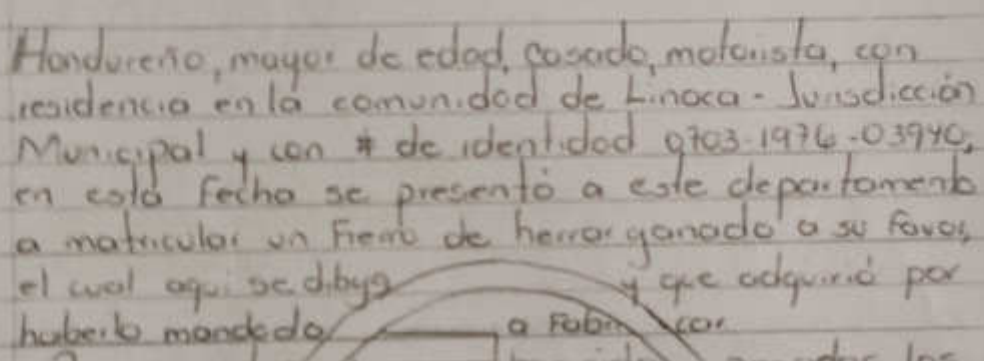 Hondureño, mayor de edad, casado, motorista, con
residencia en la comunidad de Linaca - Jurisdicción
Municipal y con # de identidad 0703-1974-03940,
en está fecha se presentó a este departamento
a matricular un Fierro de herrar ganado a su favor,
el cual aqui se dibuja y que adquirió por
haberlo mandado a Fabricar